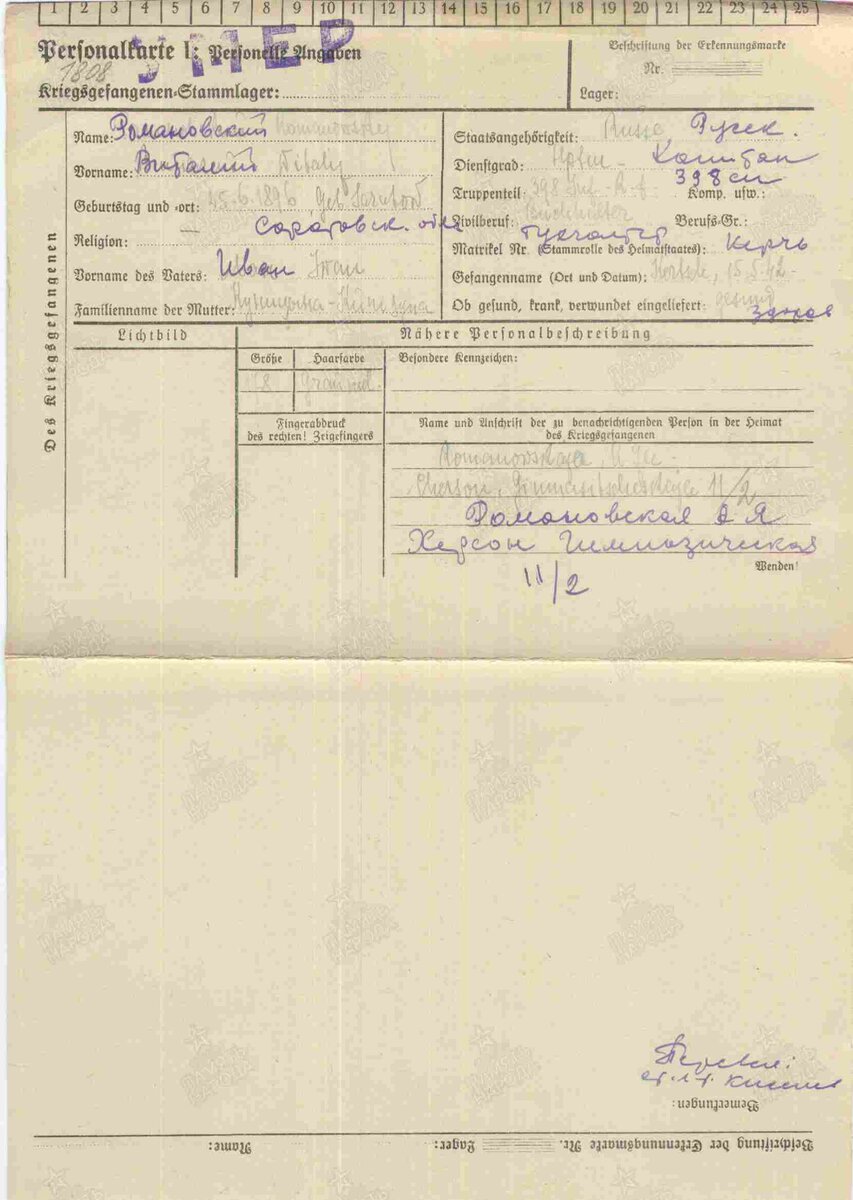 1 2 3 4 5 6 7 8 9 10 11 12 13 14 15 16 17 18 19 20 21 22 23 24 25
УМЕР
Personalkarte I: Personelle Angaben
1808
Kriegsgefangenen-Stammlager:
Beschriftung der Erkennungsmarke
Nr.
Lager:
Des Kriegsgefangenen
Name: Романовский Romanowsky
Vorname: Виталий Vitaly
Geburtstag und -ort: 25.6.1896 Geb. Saratow
Саратовск. обл.
Religion: —
Vorname des Vaters: Иван Iwan
Familienname der Mutter:
Staatsangehörigkeit: Russe Русск.
Dienstgrad: Капитан
Truppenteil: 398 Inf. R. 398 сп Komp. usw.:
Zivilberuf: Buchhalter Бухгалтер Berufs-Gr.:
Matrikel Nr. (Stammrolle des Heimatstaates): Керчь
Gefangenname (Ort und Datum): Kertsch, 15.5.42
Ob gesund, krank, verwundet eingeliefert: gesund
здоров
Lichtbild
Nähere Personalbeschreibung
Größe Haarfarbe Besondere Kennzeichen:
Fingerabdruck
des rechten! Zeigefingers
Name und Anschrift der zu benachrichtigenden Person in der Heimat
des Kriegsgefangenen
Romanowskaja
Cherson, 11/2
Романовская Я
Херсон Гимназическая
11/2
Wenden!
Перевел:
ст. л-т.
Bemerkungen:
Beschriftung der Erkennungsmarke Nr. Lager: Name: